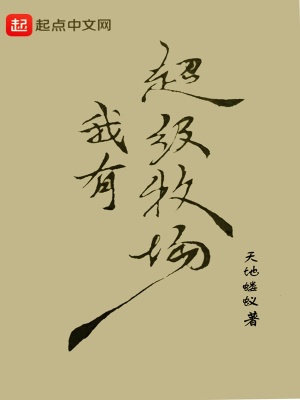 起 起点中文网
我有
超级牧场
天地蝼蚁 著